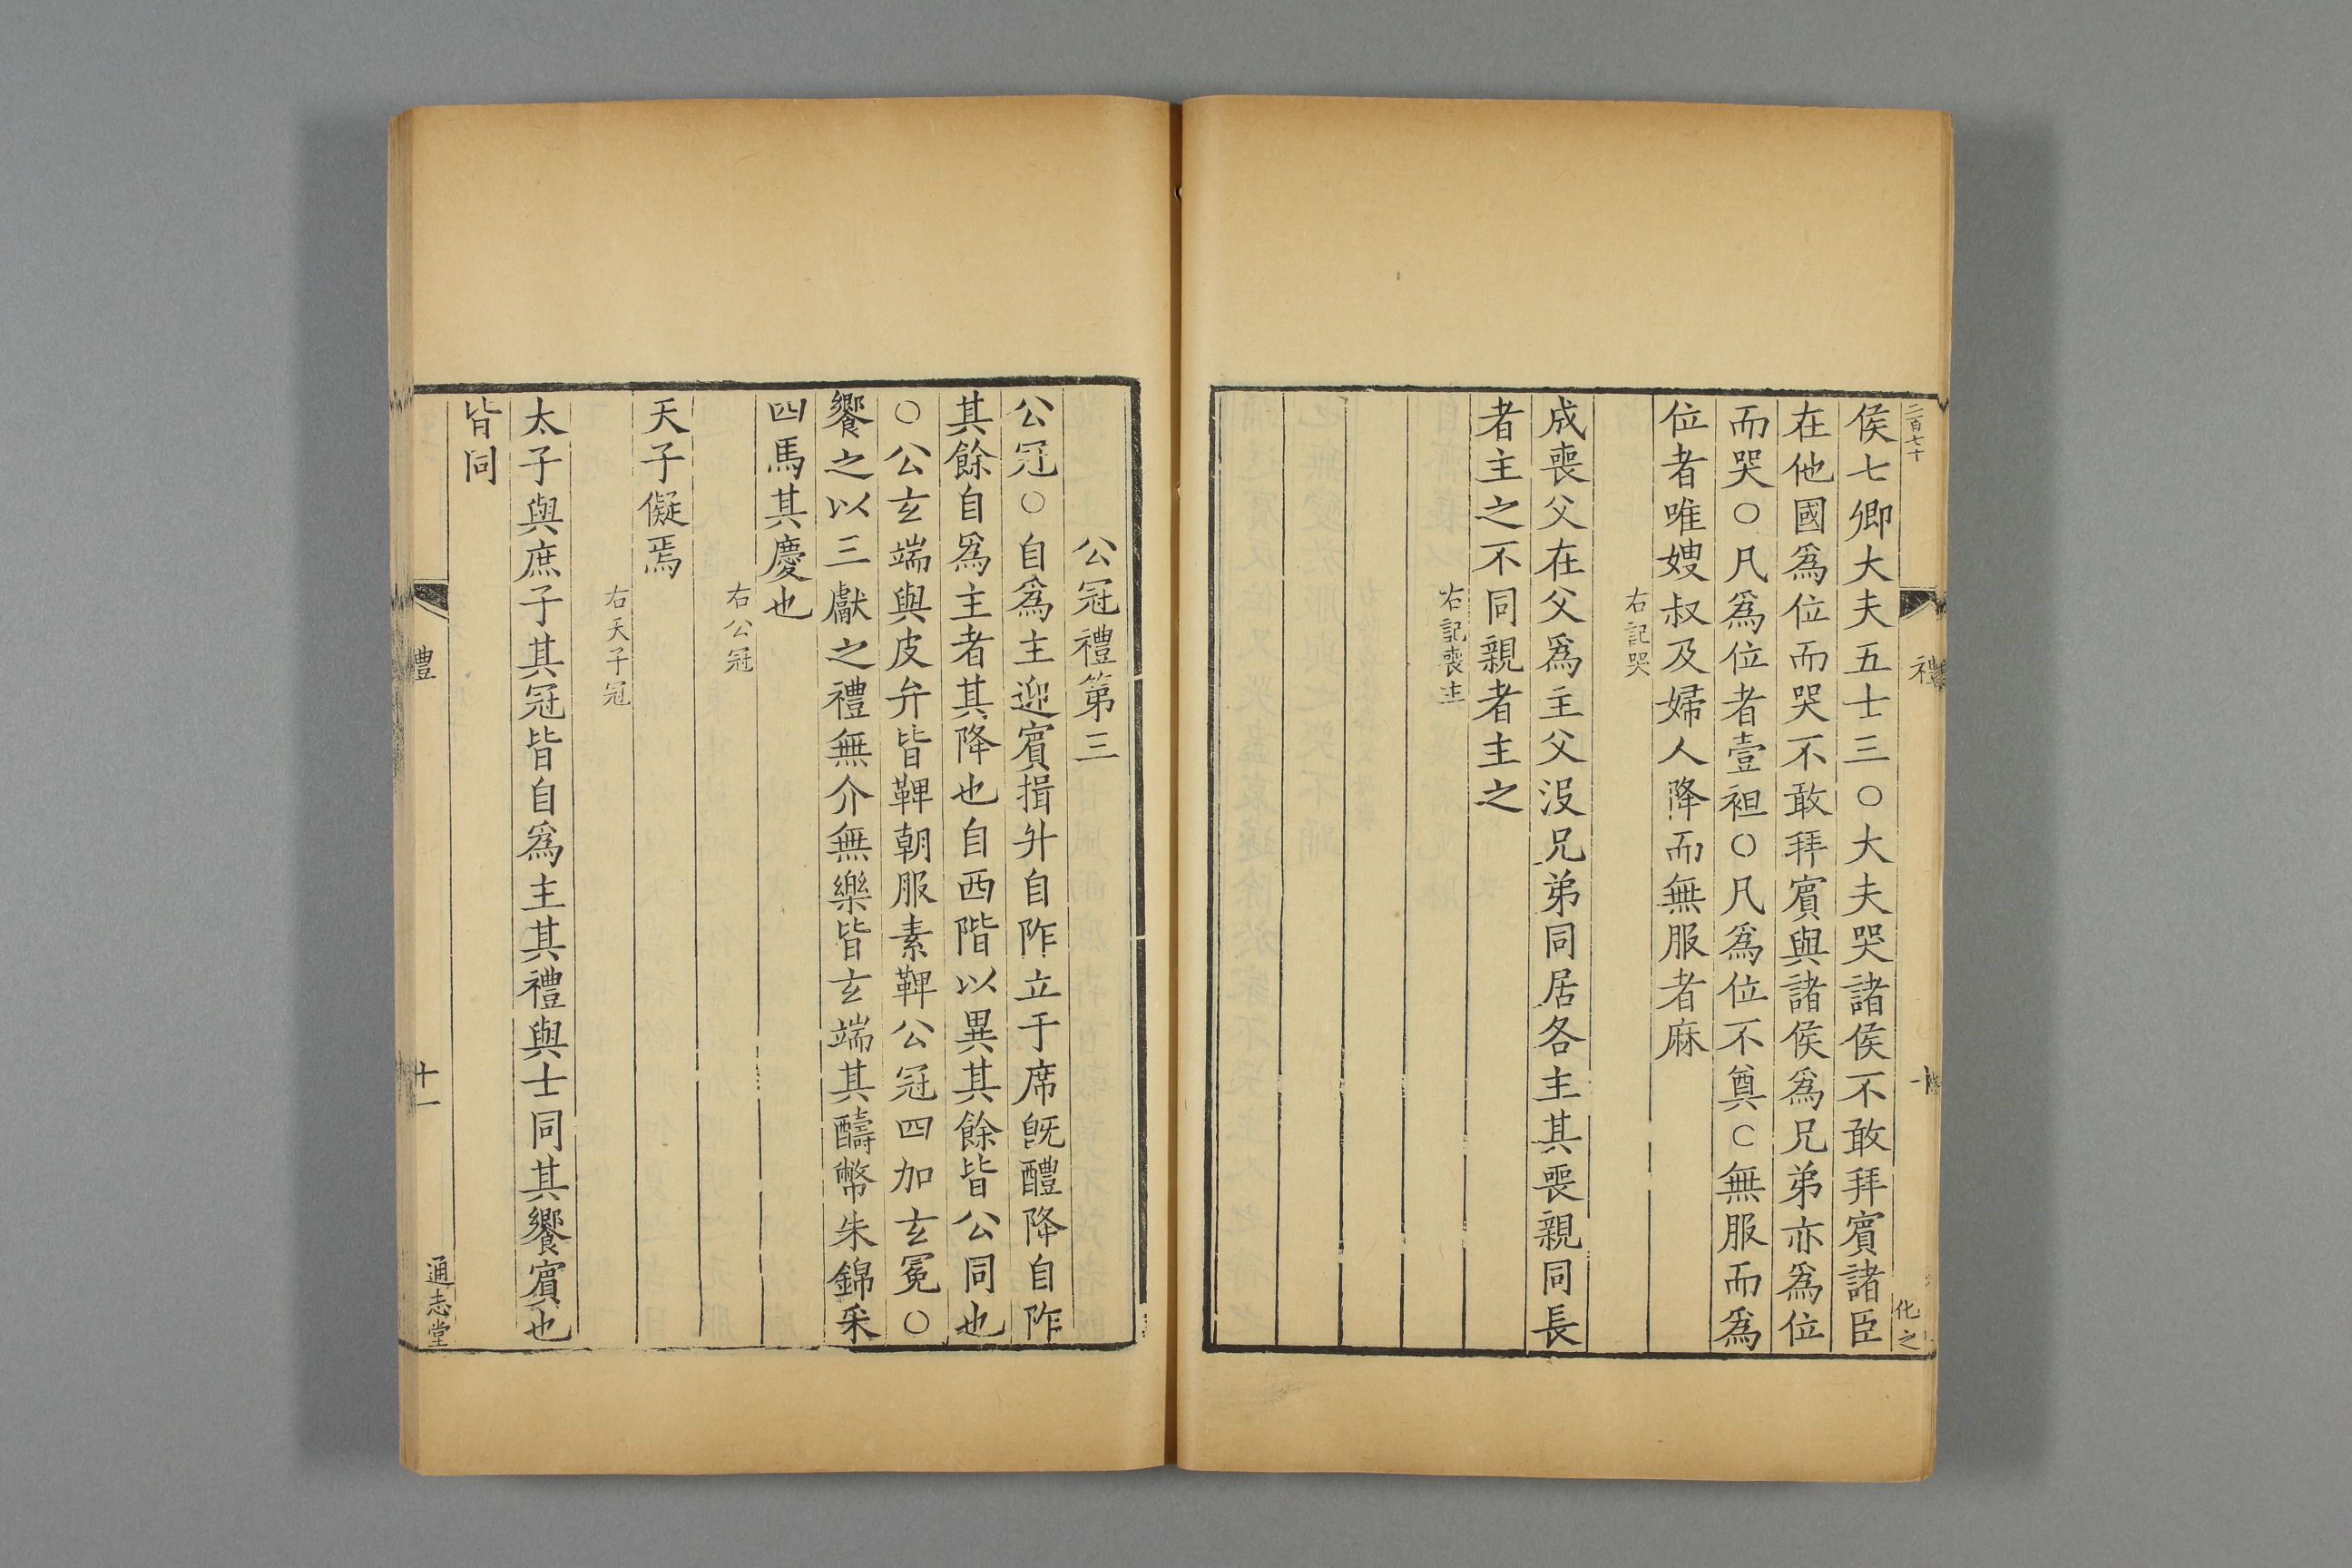 二百七十
禮
十
化之
侯七卿大夫五士三○大夫哭諸侯不敢拜賓諸臣
在他國爲位而哭不敢拜賓與諸侯爲兄弟亦爲位
而哭○凡爲位者壹袒○凡爲位不奠○無服而爲
位者唯嫂叔及婦人降而無服者麻
右記哭
成喪父在父爲主父沒兄弟同居各主其喪親同長
者主之不同親者主之
右記喪主
公冠禮第三
公冠○自爲主迎賓揖升自阼立于席旣醴降自阼
其餘自爲主者其降也自西階以異其餘皆公同也
○公玄端與皮弁皆鞞朝服素鞞公冠四加玄冕○
饗之以三獻之禮無介無樂皆玄端其醻幣朱錦采
四馬其慶也
右公冠
天子儗焉
右天子冠
太子與庶子其冠皆自爲主其禮與士同其饗賓也
皆同
禮
十一
通志堂